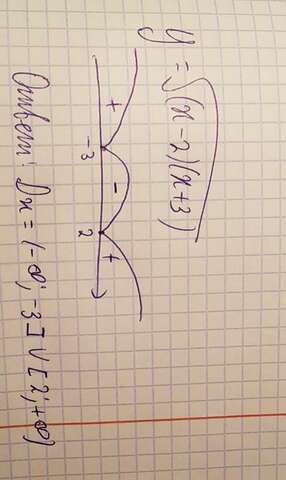 y = √(x-2)(x+3)
+ - +
-3 2
Ответ: Dx = (-∞; -3] U [2; +∞)